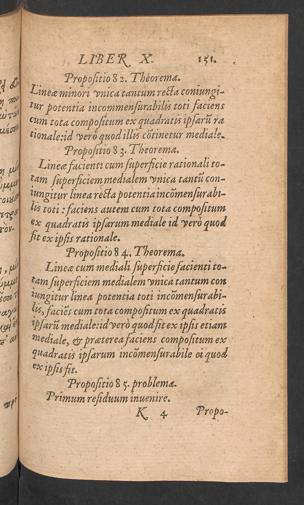 LIBER X. 151.
Propositio 82. Theorema.
Lineæ minori vnica tantum recta coniungi-
tur potentia incommensurabilis toti faciens
cum tota compositum ex quadratis ipsarū ra
tionale: id verò quod illis cōtinetur mediale.
Propositio 83. Theorema.
Lineæ facienti cum superficie rationali to-
tam superficiem medialem vnica tantū con-
iungitur linea recta potentia incōmensurabi-
lis toti: faciens autem cum tota compositum
ex quadratis ipsarum mediale id verò quod
fit ex ipsis rationale.
Propositio 84. Theorema.
Lineæ cum mediali superficie facienti to-
tam superficiem medialem vnica tantum con
iungitur linea potentia toti incōmensurabi-
lis, faciēs cum tota compositum ex quadratis
ipsarū mediale: id verò quod fit ex ipsis etiam
mediale, & præterea faciens compositum ex
quadratis ipsarum incōmensurabile ei quod
ex ipsis fit.
Propositio 85. problema.
Primum residuum inuenire.
K 4 Propo-